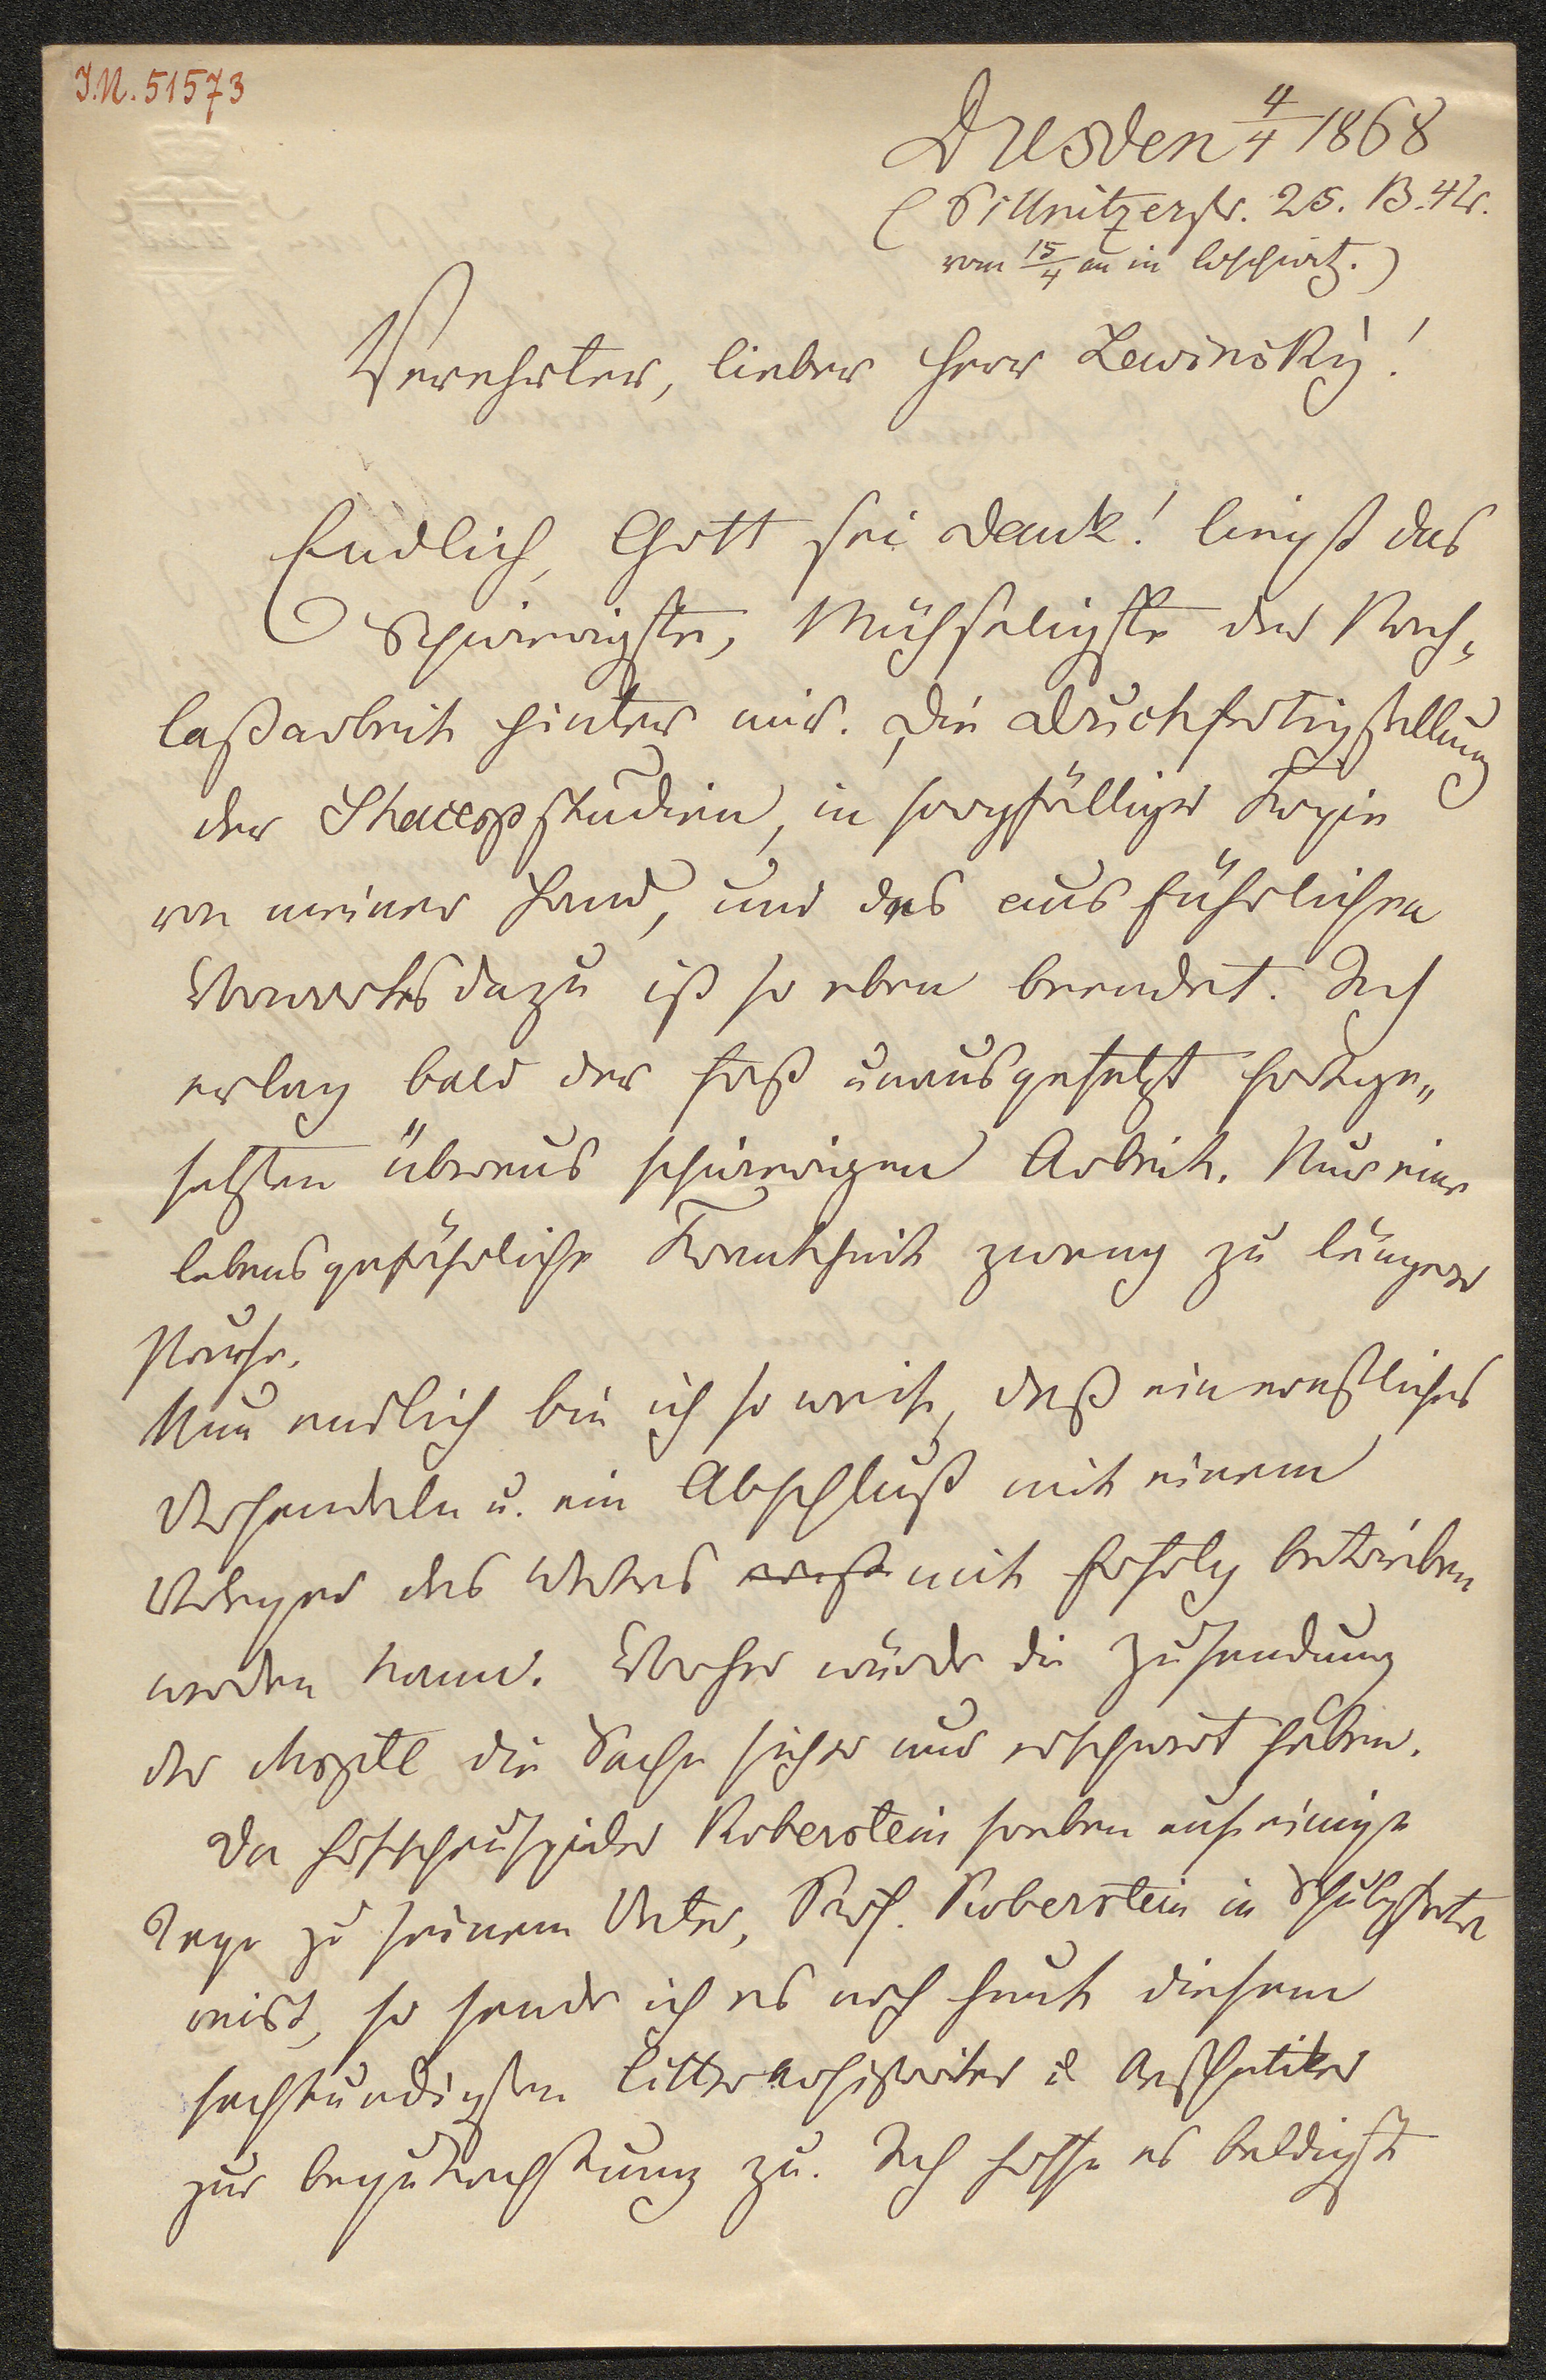 J.N. 51573
Dresden 4/4 1868
(Pillnitzerstr. 25. B. 4 Tr.
vom 15/4 an in Loschwitz.)
Verehrter, lieber Herr Lewinsky!
Endlich, Gott sei Dank! liegt das
Schwierigste, Mühseligste der Nach-
laßarbeit hinter mir. Die Druckfertigstellung
der Shakespstudien, in sorgfältiger Kopie
von meiner Hand, und des ausführlichen
Vorwortes dazu ist so eben beendet. Ich
erlag bald der fast unausgesetzt fortge-
setzten überaus schwierigen Arbeit. Nur eine
lebensgefährliche Krankheit zwang zu längerer
Pause.
Nun endlich bin ich so weit, daß ein ernstliches
Verhandeln u. ein Abschluß mit einem
Verleger des Werkes erst mit Erfolg betrieben
werden kann. Vorher würde die Zusendung
der Mspte die Sache sicher nur erschwert haben.
Da Hofschauspieler Koberstein soeben auf einige
Tage zu seinem Vater, Prof. Koberstein in Schulpforta
reist, so sende ich es noch heut diesem
sachkundigsten Litterarhistoriker u Aesthetiker
zur Begutachtung zu. Ich hoffe es baldigst